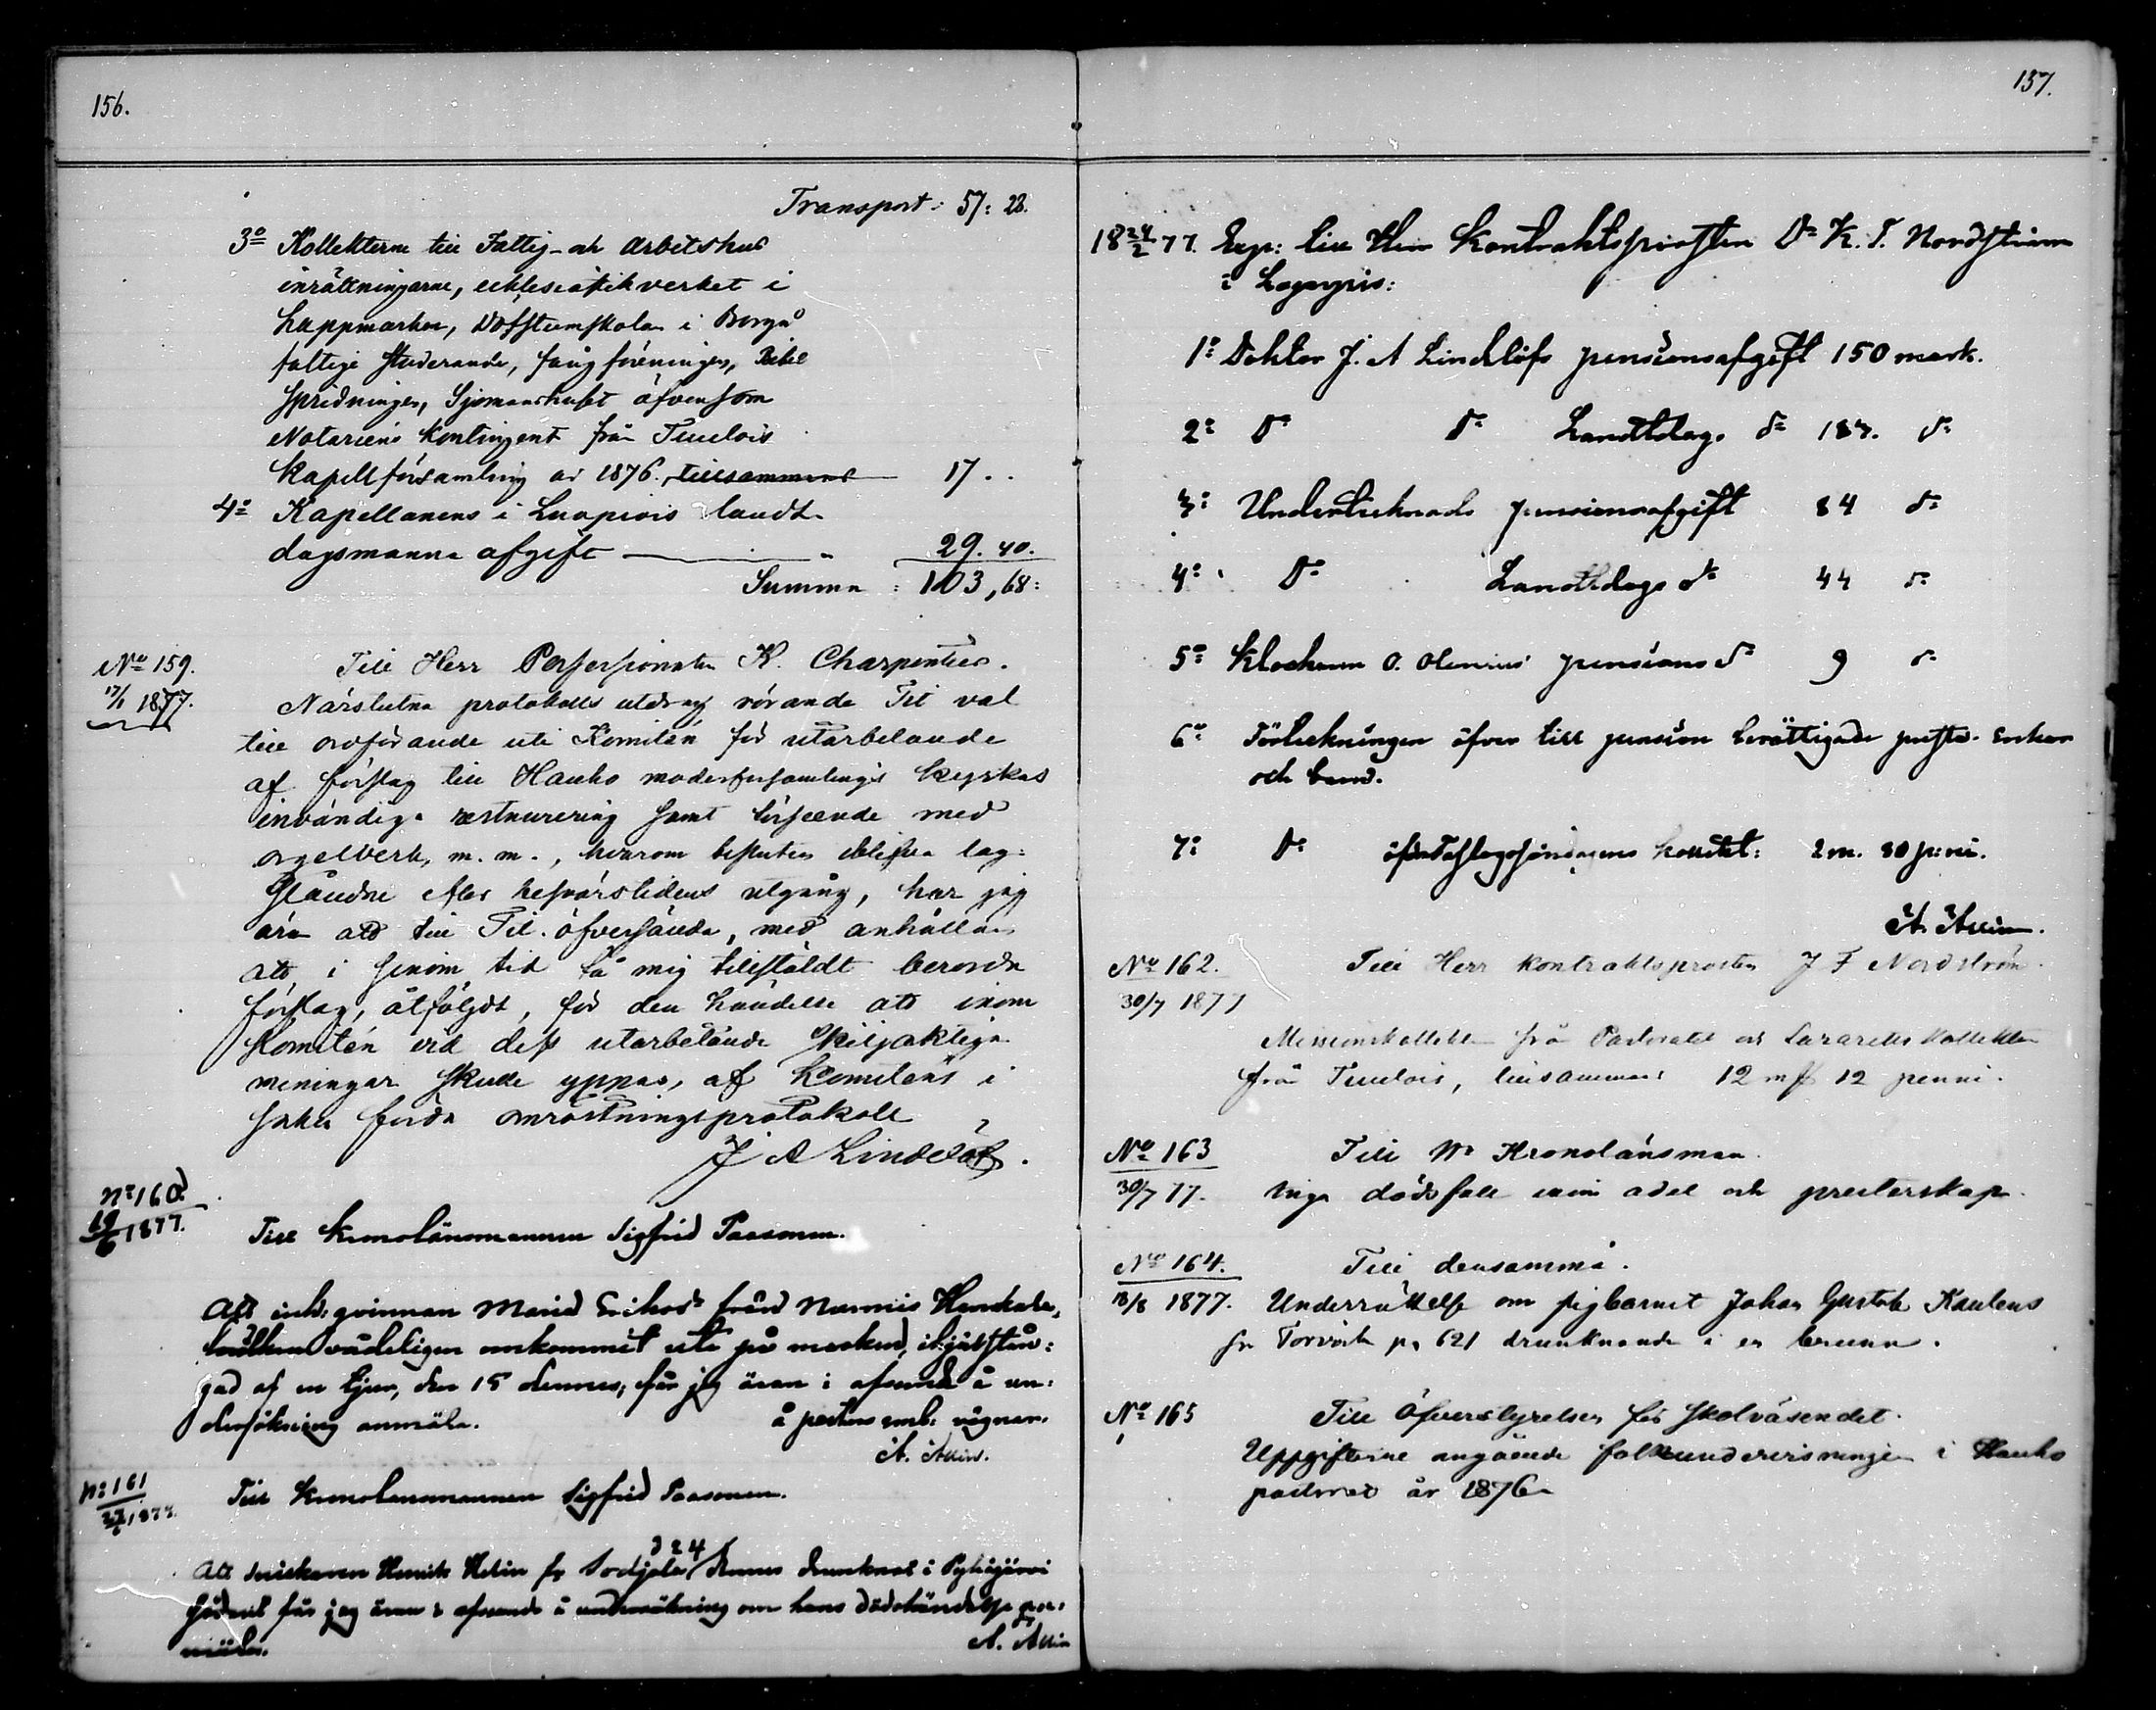 156.
Transport: 57: 28.
3o Kollekterne till Fattig- och Arbetshus
inrättningarne, ecklesiastikverket i
Lappmarken, Döfstumskolan i Borgå
fattige studerande, fångföreningen, Bibel
spridningen, Sjömanshuset äfvensom
Notariens Kontingent från Tuulois
Kapellförsamling år 1876. tillsammans 17..
4o Kapellanens i Luopiois landt-
dagsmanna afgift " 29. 40.
Summa : 103,68:
No 159.
17/1 1877.
Till Herr K. Charpentier.
Närslutna protokolls utdrag rörande Tit val
till ordförande uti Komitén för utarbetande
af förslag till Hauho moderförsamlings kyrkas
invändiga restaurering samt förseende med
orgelverk, m.m., hvarom besluten blifva lag-
gällande efter besvärstidens utgång, har jag
äran att till Tit. öfversända, med anhållan
att i sinom tid få mig tillstäldt berörde
förslag, åtföljdt, för den händelse att inom
Komitén vid dess utarbetande skiljaktiga
meningar skulle yppas, af Komiténs i
saken förda omröstningsprotokoll
J A Lindelöf.
No 160.
19/6 1877.
Till Kronolänsmannen Sigfrid Paasonen.
Att inh: qvinnan Maria Eriksdr från Nummis Hankala,
våldeligen omkommit ute på marken, ihjälstån-
gad af en tjur, den 15 dennes, får jag äran i afseende å un-
dersökning anmäla. å pastors emb: vägnar.
A. Allin.
No 161
27/6 1877.
Till Kronolänsmannen Sigfrid Paasonen.
Att Henrik Helin fr Sodjala d 24 dennes drunknat i Pyhäjärvi
får jag äran i afseende å undersökning om hans dödshändelse an-
mäla. A. Allin
157.
18 24/2 77. Exp: till Herr Kontraktsprosten Dr K. T. Nordström
i
1o Doktor J. A Lindelöfs pensionsafgift 150 mark.
2o Do do Landtdags do 187. do
3o Undertecknads pensionsafgift 84 do
4o Do Landtdags do 44 do
5o Klockaren O. Olenius pensions do 9 do
6o Förteckningen öfver till pension berättigade prest- enkor
och barn.
7o Do 2 m. 80 penni.
A. Allin.
No 162.
30/7 1877
Till Herr Kontraktsprosten J F Nordström.
Missionskollekten från Pastoratet och Lazaretts kollekten
från Tuulois, tillsammans 12 mf 12 penni.
No 163
30/7 77.
Till Hr Kronolänsman.
Inga dödsfall inom adel och presterskap.
No 164.
18/8 1877.
Till densamma.
Underrättelse om pigbarnet Johan Gustaf Kaulens
fr Torvoila p. 621 drunknande i en brunn.
No 165
Till Öfverstyrelsen för Skolväsendet.
Uppgifterne angående folkundervisningen i Hauho
pastorat år 1876